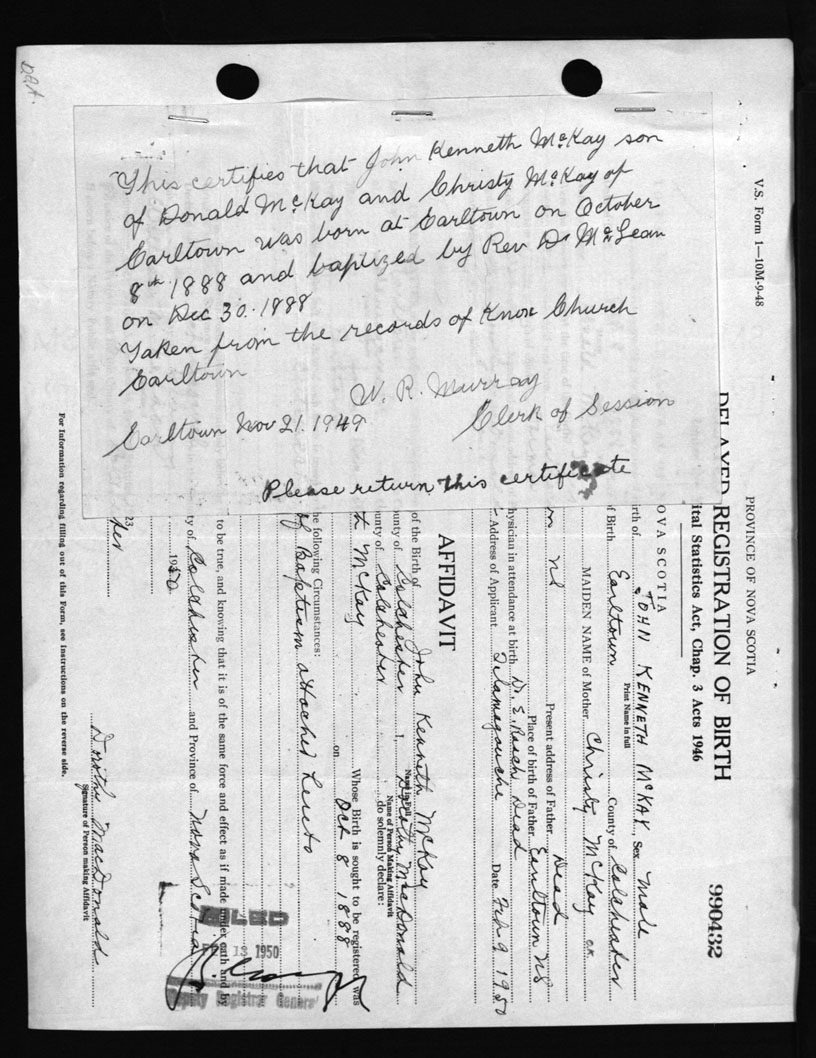 This certifies that John Kenneth McKay son
of Donald McKay and Christy McKay of
Earltown was born at Earltown on October
8th 1888 and baptized by Rev Dr McLean
on Dec 30. 1888
Taken from the records of Knox Church
Earltown
W. R. Murray
Clerk of Session
Earltown Nov 21. 1949
Please return this certificate
V.S. Form 1—10M-9-48
PROVINCE OF NOVA SCOTIA
990432
DELAYED REGISTRATION OF BIRTH
ital Statistics Act, Chap. 3 Acts 1946
OVA SCOTIA
irth of JOHN KENNETH McKAY Sex Male
Print Name in full
f Birth Earltown County of Colchester
MAIDEN NAME of Mother Christy McKay
Present address of Father Dead
Place of birth of Father Earltown NS
hysician in attendance at birth Dr. E. Roach Dead
Address of Applicant Tatamagouche Date Feb 9 1950
AFFIDAVIT
of the Birth of John Kenneth McKay
Name in Full
ounty of Colchester I, Dorothy MacDonald
Name of Person Making Affidavit
ounty of Colchester do solemnly declare:
Whose Birth is sought to be registered was
McKay on Oct 8 1888
he following Circumstances:
of Baptism attached hereto
to be true, and knowing that it is of the same force and effect as if made under oath and by
ty of Colchester and Province of Nova Scotia
1950
FILED
13 1950
Deputy Registrar General
23.
Dorothy MacDonald
Signature of Person making Affidavit
For Information regarding filling out of this Form, see Instructions on the reverse side.